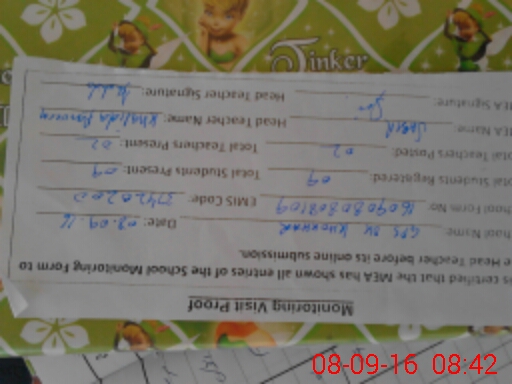 Tinker
Monitoring Visit Proof
is certified that the MEA has shown all entries of the School Monitoring Form to
e Head Teacher before its online submission.
hool Name: GPS DK KHOKHAR Date: 08.09.16
hool Form No: EMIS Code: 37420200
otal Students Registered: 09 Total Students Present: 09
otal Teachers Posted: 02 Total Teachers Present: 02
EA Name: Head Teacher Name: Khalida Parveen
EA Signature: Head Teacher Signature:
08-09-16 08:42